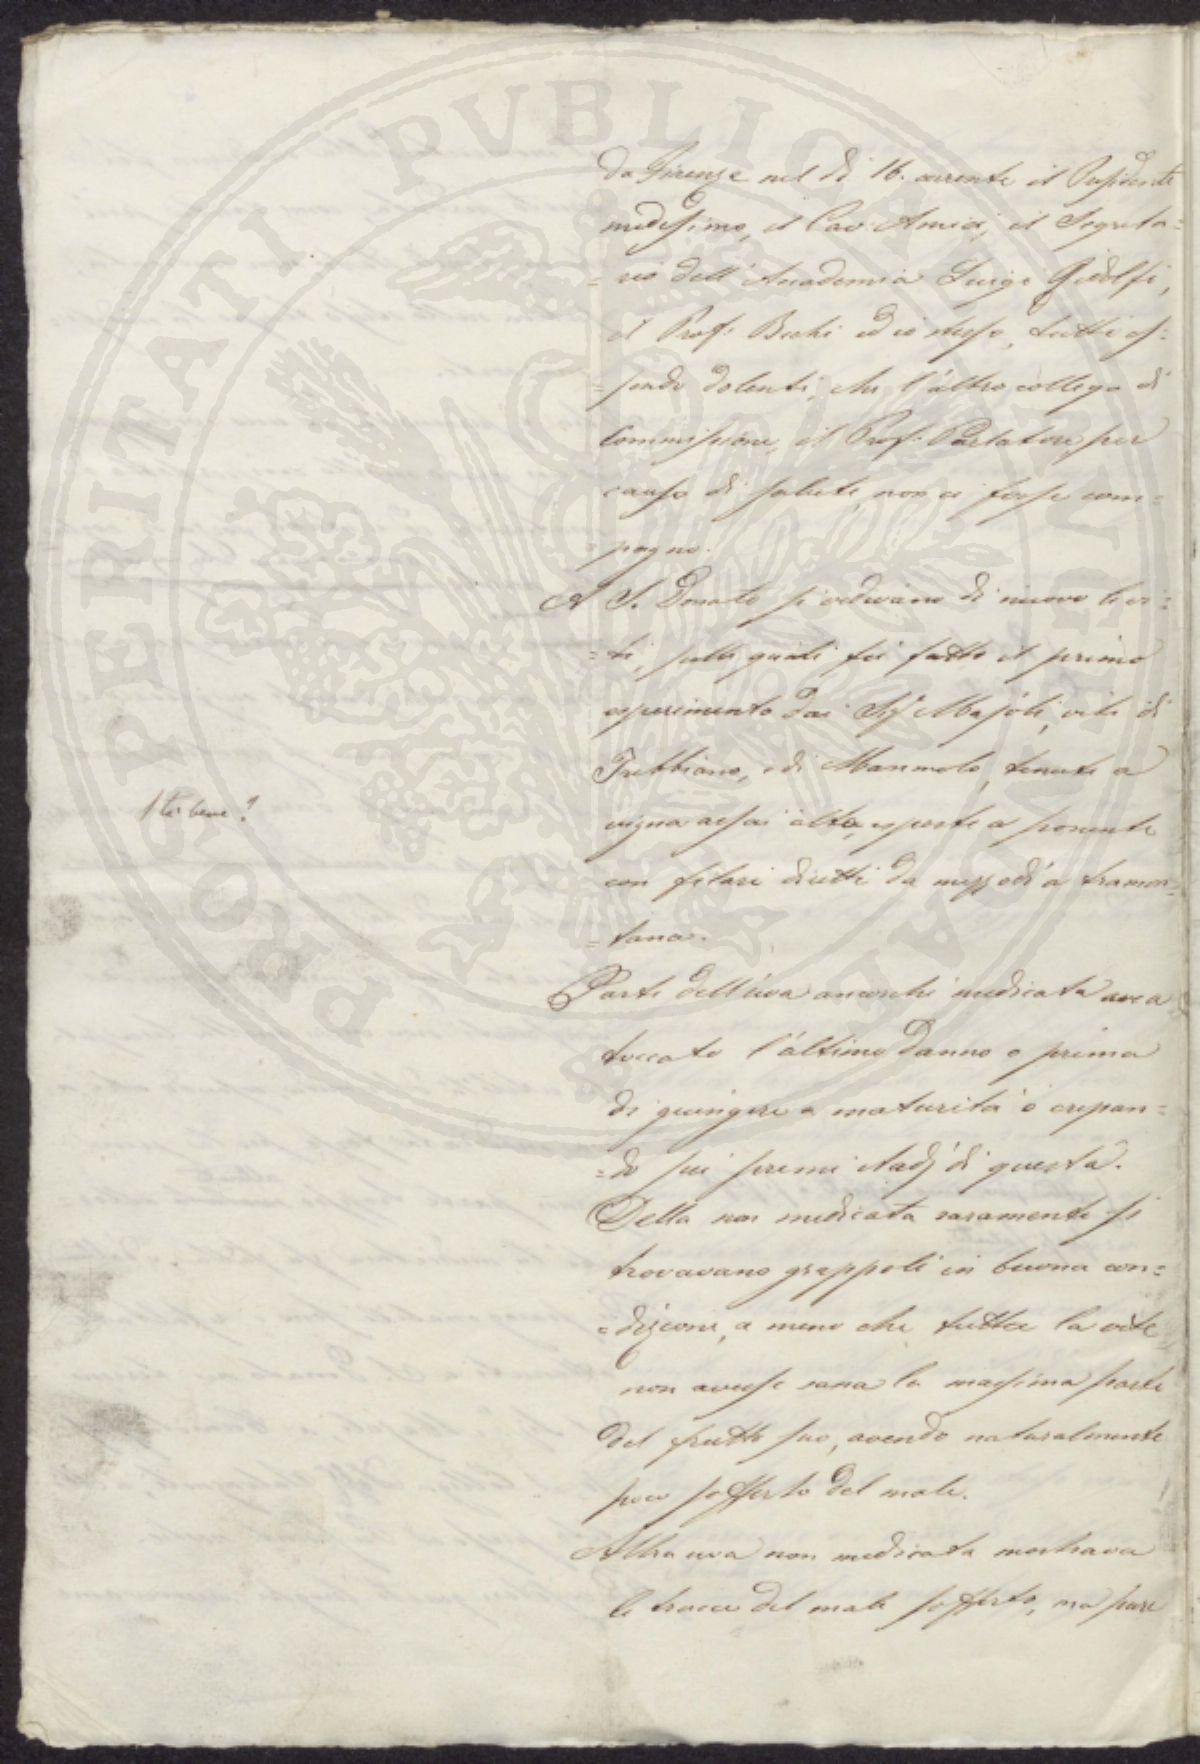 da Firenze nel dì 16. corrente il Presidente
medesimo, il Cav: Amici, il Segreta=
=rio dell'Accademia Luigi Ridolfi,
il Prof: Bechi ed io stesso, tutti es=
=sendo dolenti, che l'altro collega di
Commissione, il Prof. Parlatore per
causa di salute, non ci fosse com=
=pagno.
A S. Donato si vedevano di nuovo le vi=
=ti, sulle quali fu fatto il primo
esperimento dai Sigri Majoli, viti di
Trebbiano, e di Mammolo, tenute a
Sta bene?
vigna assai alta, esposte a ponente
con filari diretti da mezzodì a tramon=
=tana.
Parte dell'uva ancorchè medicata avea
toccato l'ultimo danno o prima
di giungere a maturità o crepan=
=do sui primi stadj di questa.
Della non medicata raramente si
trovavano grappoli in buona con=
=dizione, a meno che tutta la vite
non avesse sana la massima parte
del frutto suo, avendo naturalmente
poco sofferto del male.
Altra uva non medicata mostrava
le tracce del male sofferto, ma pure
PROSPERITATI PUBLICAE AUGENDAE